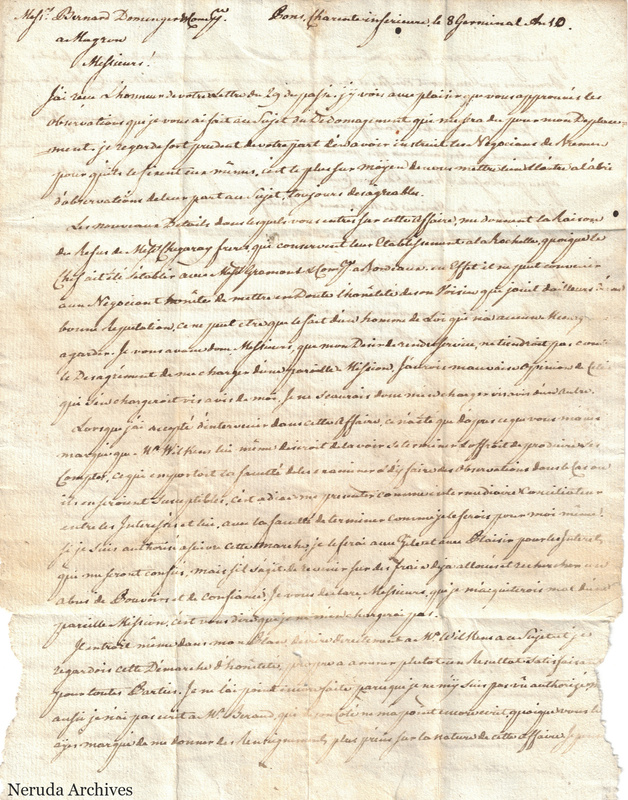 Mess.rs Bernard Domenger & Comp.ie Pons, Charente inferieure, le 8 Germinal An 10.
a Mugron
Messieurs!
J'ai recu L'honneur de votre Lettre du 29 du passé; j'y vois avec plaisir que vous approuvés les
Observations que je vous ai fait au Sujet du Dedomagement que pour mon Deplace-
-ment. je regarde fort prudent de votre part d'en avoir instruit les Négocians de Bremen
pour qu'ils le fixent eux mêmes, c'est le plus sur moyen de nous mettre l'un & l'autre a l'abri
d'observations de leur part au Sujet, toujours desagreables.
Les nouveaux Details dans lesquels vous entrés sur cette Affaire, me donnent la Raison
du Refus de Mess.rs Chegaray freres, qui conservent leur Etablissement a la Rochelle, quoique le
Chef ait été s'établir avec Mess.rs Gramont & Comp.ie a Bordeaux. en Effet il ne peut convenir
a un Négociant honnête de mettre en Doute l'honêteté de son Voisin qui jouit d'ailleurs d'une
bonne Reputation, ce ne peut etre que le fait d'un homme de Loi qui n'a aucun
a garder. Je vous avoue donc Messieurs, que mon Desir de rendre service, ne tiendroit pas contre
le Desagrément de me charger d'une pareille Mission, J'aurois mauvaise Opinion de Celui
qui s'en chargeroit vis avis de moi, Je ne Scaurois donc m'en charger vis avis d'un autre.
Lorsque j'ai accepté d'intervenir dans cette Affaire, ce n'a été que d'après ce que vous m'aviés
marqué que M.r Wilkens lui même desiroit de la voir se terminer & offroit de produire ses
Comptes, ce qui emportoit la faculté de les examiner & d'y faire des Observations dans le Cas ou
ils en seroient Susceptibles, c'est a dire me presenter comme intermediaire & Conciliateur
entre les Interessés et lui, avec la faculté de terminer comme je le ferois pour moi même!
Si je Suis authorisé a suivre cette marche, je le ferai avec Zele et avec Plaisir pour les Interets
qui me seront confiés, mais s'il s'agit de revenir sur des Frais deja alloués et rechercher un
abus de Pouvoirs et de Confiance, Je vous declare, Messieurs, que je m'aquiterois mal d'une
pareille Mission, c'est vous dire que je ne m'en chargerai pas.
Il entroit même dans mon Plan d'ecrire directement a M.r Wilkens a ce Sujet et je
regardois cette Démarche d'honêteté, propre a amener plutot un Resultat Satisfaisant
pour toutes Parties. Je ne l'ai point encore faite parceque je ne m'y suis pas vu authorisé,
aussi je n'ai pas ecrit a M.r Beraud, qui de son coté ne m'a point encore ecrit, quoique vous l'
ayés marqué de me donner des Renseignements plus précis sur la nature de cette affaire
Neruda Archives